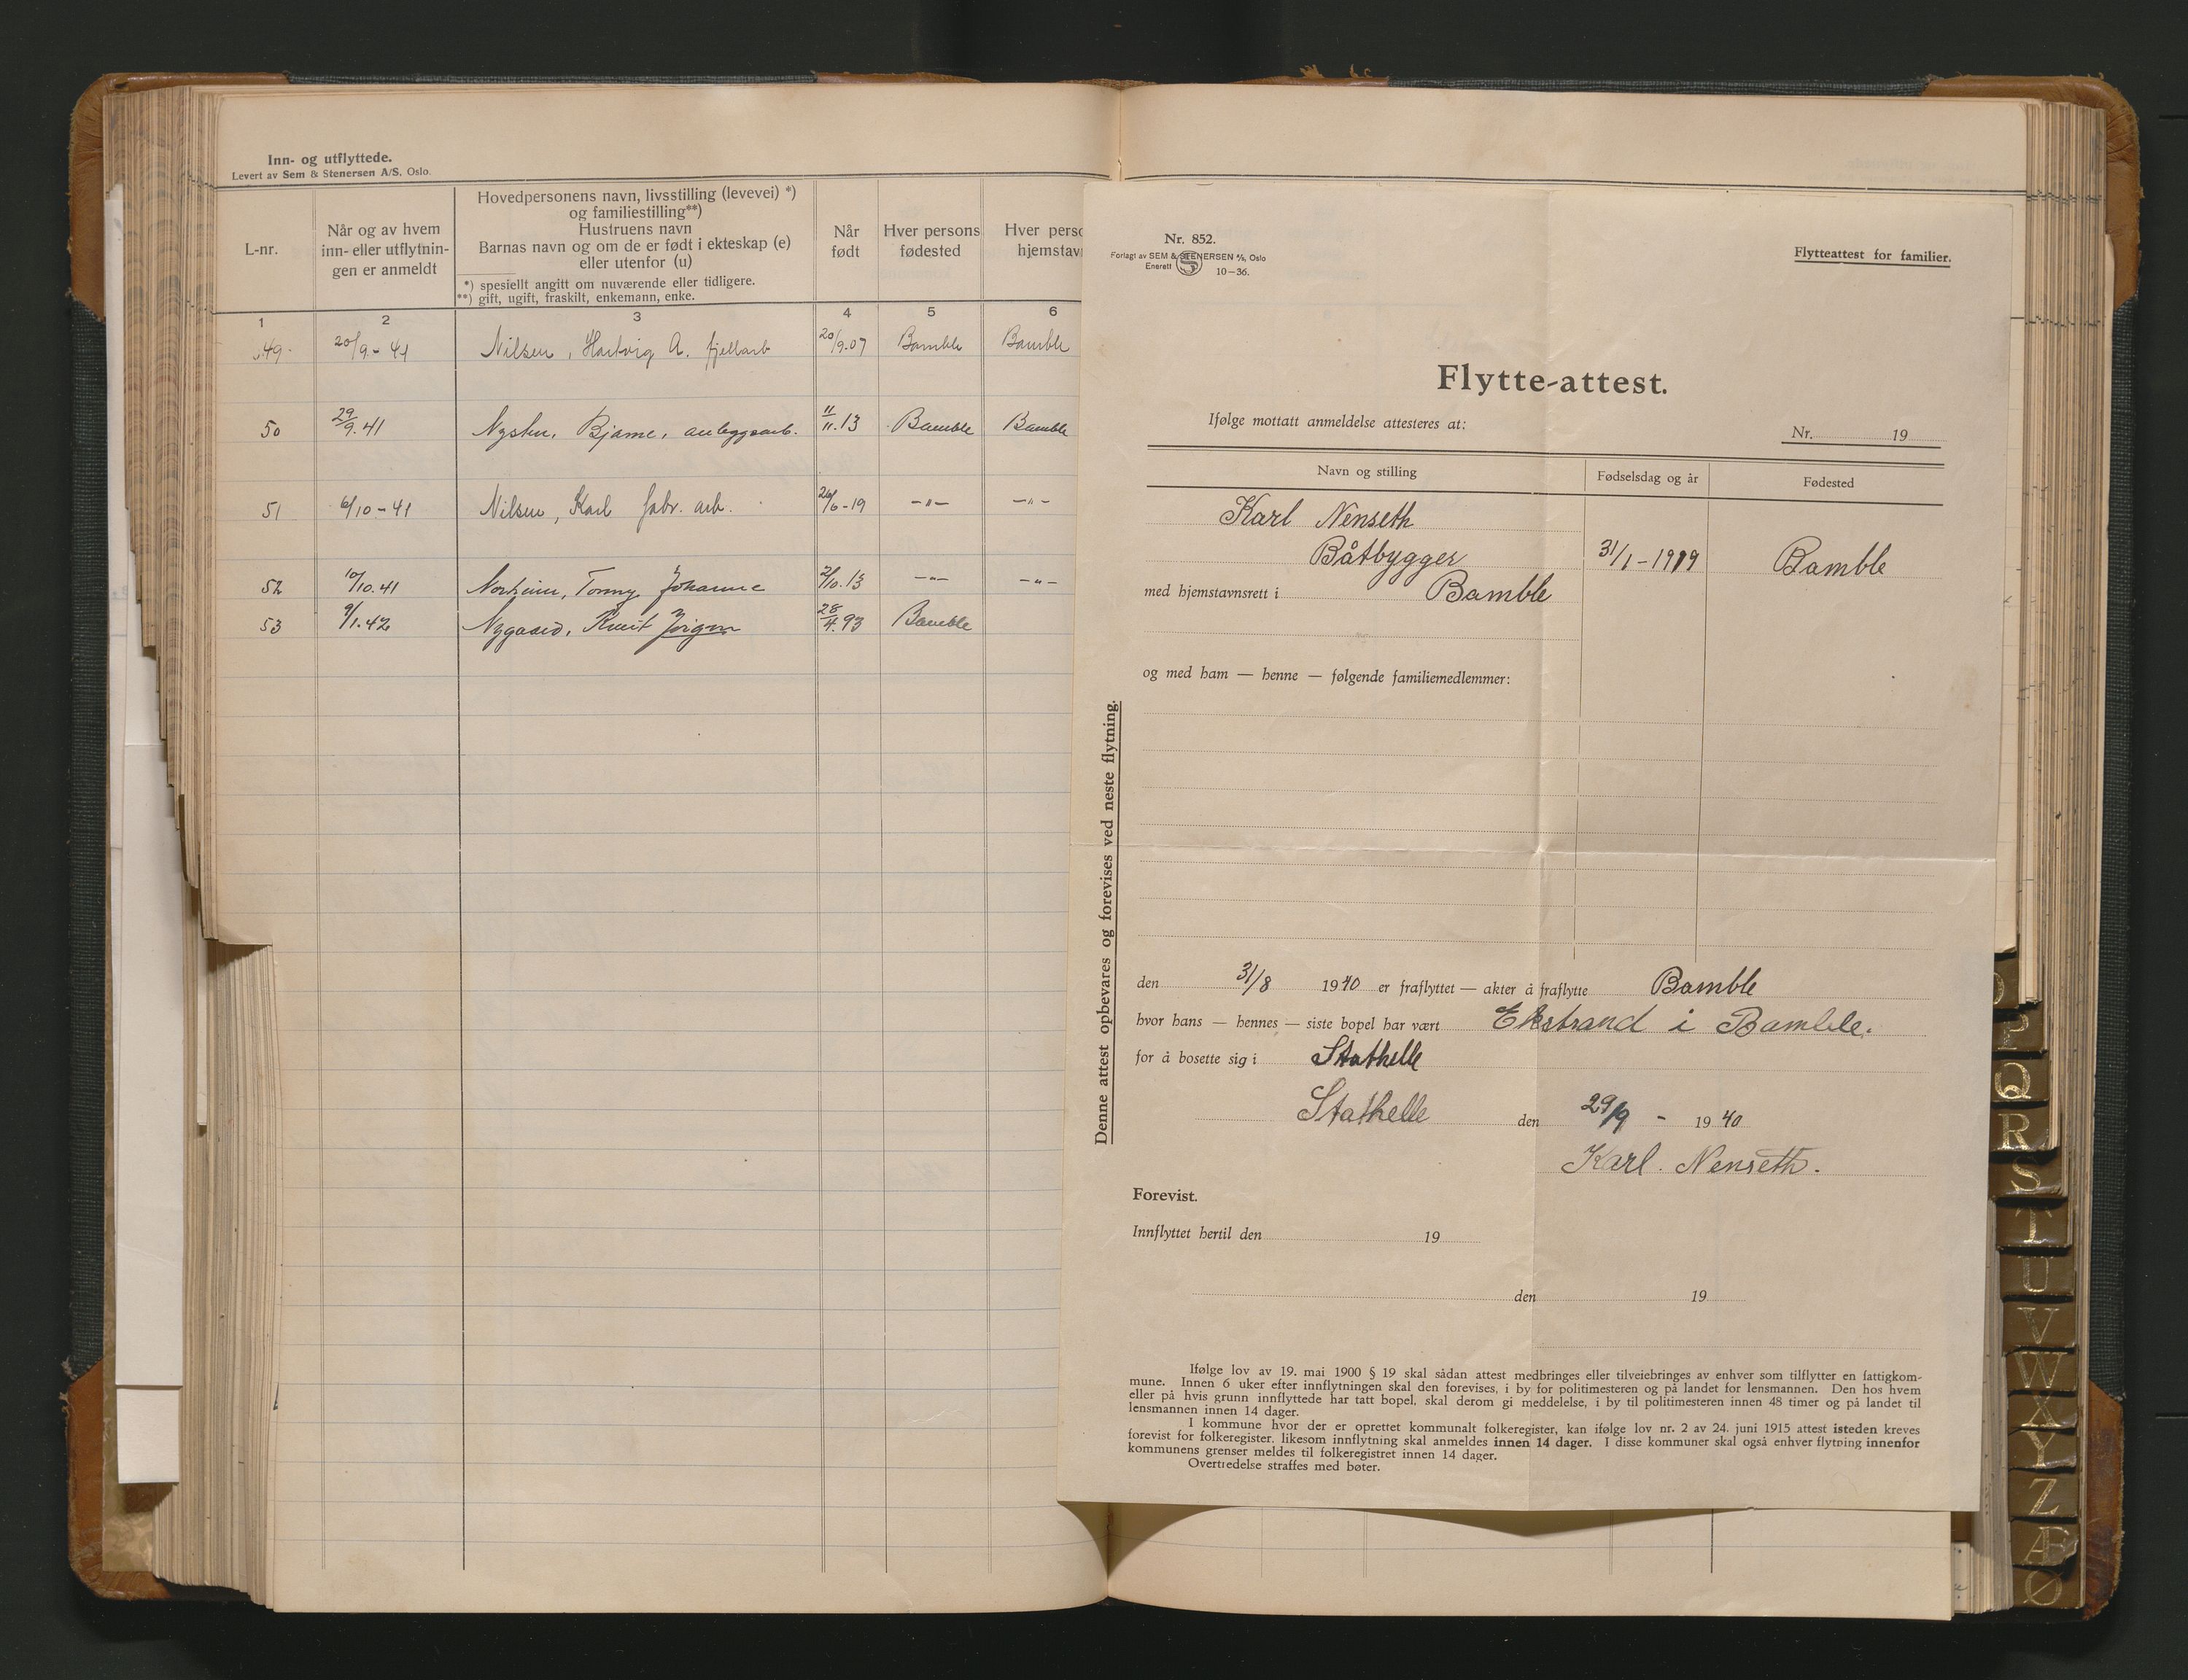 Inn- og utflyttede.
Levert av Sem & Stenersen A/S, Oslo.
L-nr.
Når og av hvem
inn- eller utflytnin-
gen er anmeldt
Hovedpersonens navn, livsstilling (levevei) *)
og familiestilling**)
Hustruens navn
Barnas navn og om de er født i ekteskap (e)
eller utenfor (u)
*) spesielt angitt om nuværende eller tidligere.
**) gift, ugift, fraskilt, enkemann, enke.
Når
født
Hver persons
fødested
Hver perso
hjemstav
1 2 3 4 5 6
49 20/9.-41 Nilsen, Hartvig A. fjellarb 20/9.07 Bamble Bamble
50 29/9.41 Nysten, Bjarne, anleggsarb. 11/11.13 Bamble Bamble
51 6/10-41 Nilsen, Karl fabr. arb. 26/6-19 -"- -"-
52 10/10.41 Norheim, Tonny Johanne 2/10.13 -"- -"-
53 9/1.42 Nygaard, Knut Jørgen 28/4.93 Bamble
Nr. 852.
Forlagt av SEM & STENERSEN A/S, Oslo
Enerett S 10-36.
Flytteattest for familier.
Flytte-attest.
Ifølge mottatt anmeldelse attesteres at:
Nr. 19
Navn og stilling Fødselsdag og år Fødested
Karl Nenseth
Båtbygger 31/1-1919 Bamble
med hjemstavnsrett i Bamble
og med ham — henne — følgende familiemedlemmer:
Denne attest opbevares og forevises ved neste flytning.
den 31/8 1940 er fraflyttet — akter å fraflytte Bamble
hvor hans — hennes — siste bopel har vært Ekstrand i Bamble.
for å bosette sig i Stathelle
Stathelle den 29/9 - 1940
Karl. Nenseth.
Forevist.
Innflyttet hertil den 19
den 19
Ifølge lov av 19. mai 1900 § 19 skal sådan attest medbringes eller tilveiebringes av enhver som tilflytter en fattigkom-
mune. Innen 6 uker efter innflytningen skal den forevises, i by for politimesteren og på landet for lensmannen. Den hos hvem
eller på hvis grunn innflyttede har tatt bopel, skal derom gi meddelelse, i by til politimesteren innen 48 timer og på landet til
lensmannen innen 14 dager.
I kommune hvor der er oprettet kommunalt folkeregister, kan ifølge lov nr. 2 av 24. juni 1915 attest isteden kreves
forevist for folkeregister, likesom innflytning skal anmeldes innen 14 dager. I disse kommuner skal også enhver flytning innenfor
kommunens grenser meldes til folkeregistret innen 14 dager.
Overtredelse straffes med bøter.
P
Q
R
S
T
U
V
W
X
Y
Z
Æ
Ø